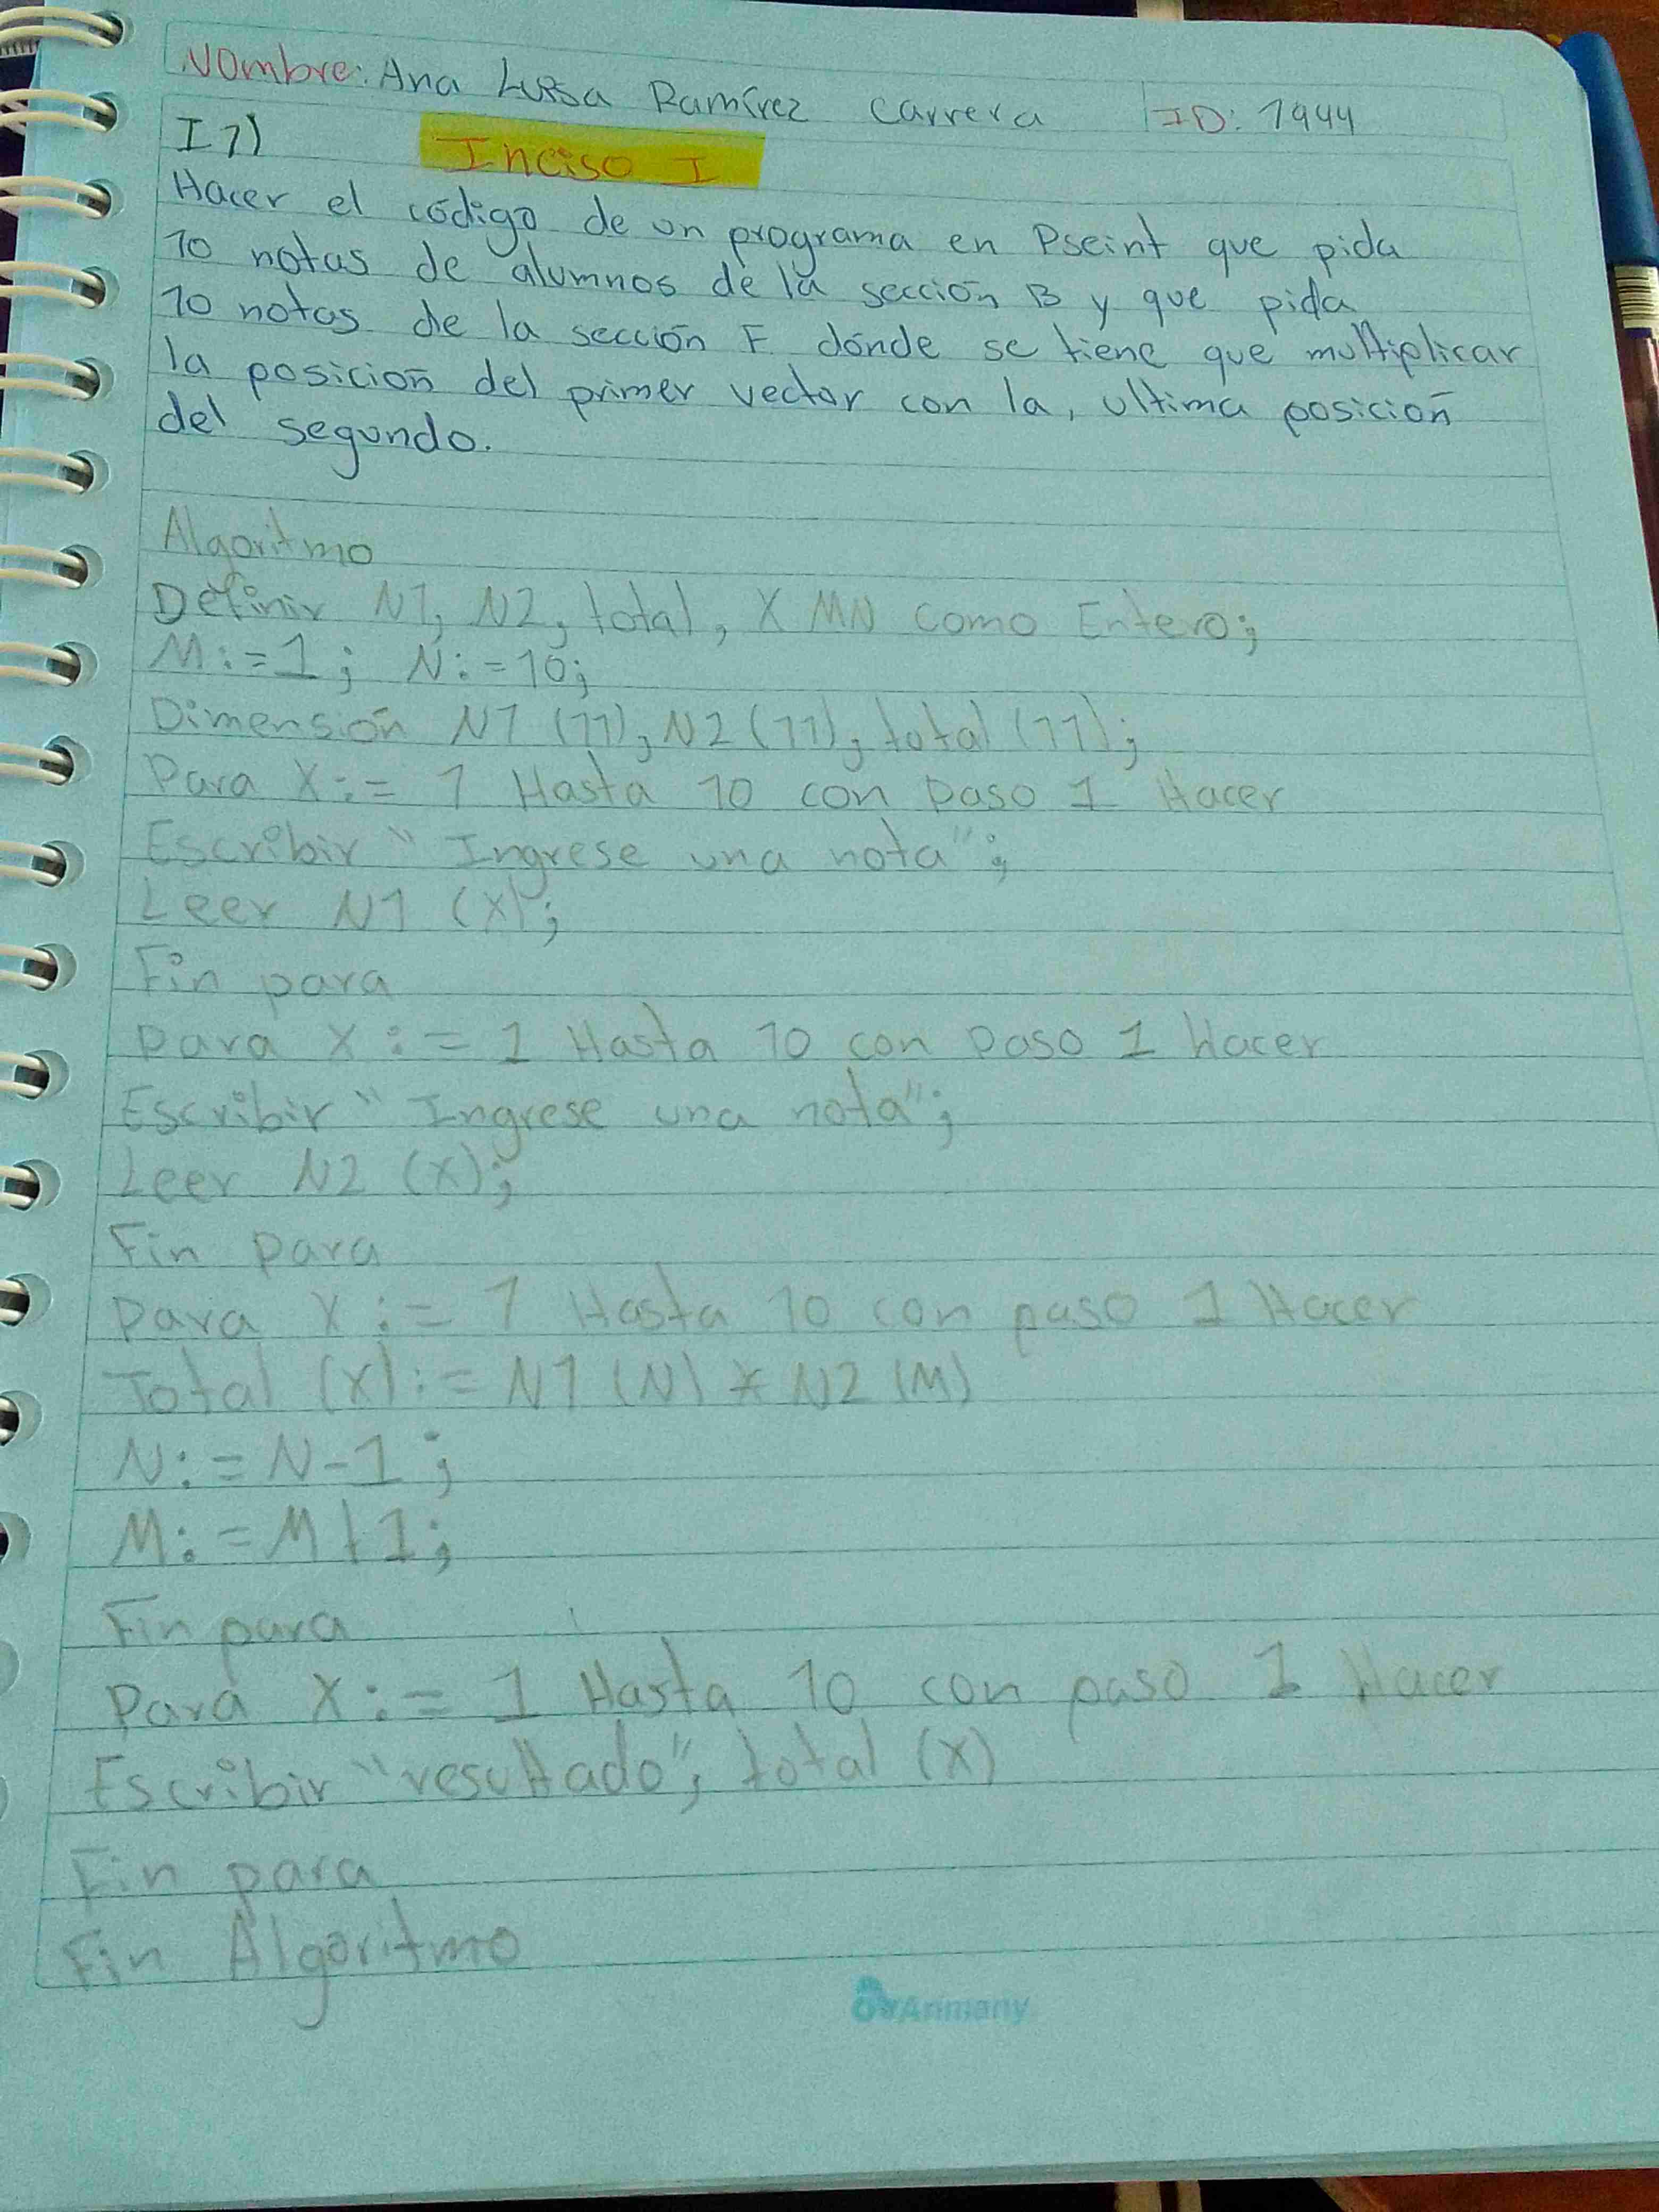 Nombre: Ana Luisa Ramírez Carrera ID: 1944
I 1)
Inciso I
Hacer el código de un programa en Pseint que pida
10 notas de alumnos de la sección B y que pida
10 notas de la sección F dónde se tiene que multiplicar
la posición del primer vector con la, ultima posición
del segundo.
Algoritmo
Definir N1, N2, total, X MN como Entero;
M:=1; N:=10;
Dimensión N1 (11), N2 (11), total (11);
Para X:= 1 Hasta 10 con paso 1 Hacer
Escribir "Ingrese una nota";
Leer N1 (X);
Fin para
Para X:= 1 Hasta 10 con paso 1 Hacer
Escribir "Ingrese una nota";
Leer N2 (X);
Fin para
Para X:= 1 Hasta 10 con paso 1 Hacer
Total (X):= N1 (N) * N2 (M)
N:= N-1;
M:= M+1;
Fin para
Para X:= 1 Hasta 10 con paso 1 Hacer
Escribir "resultado", total (X)
Fin para
Fin Algoritmo
Arimany